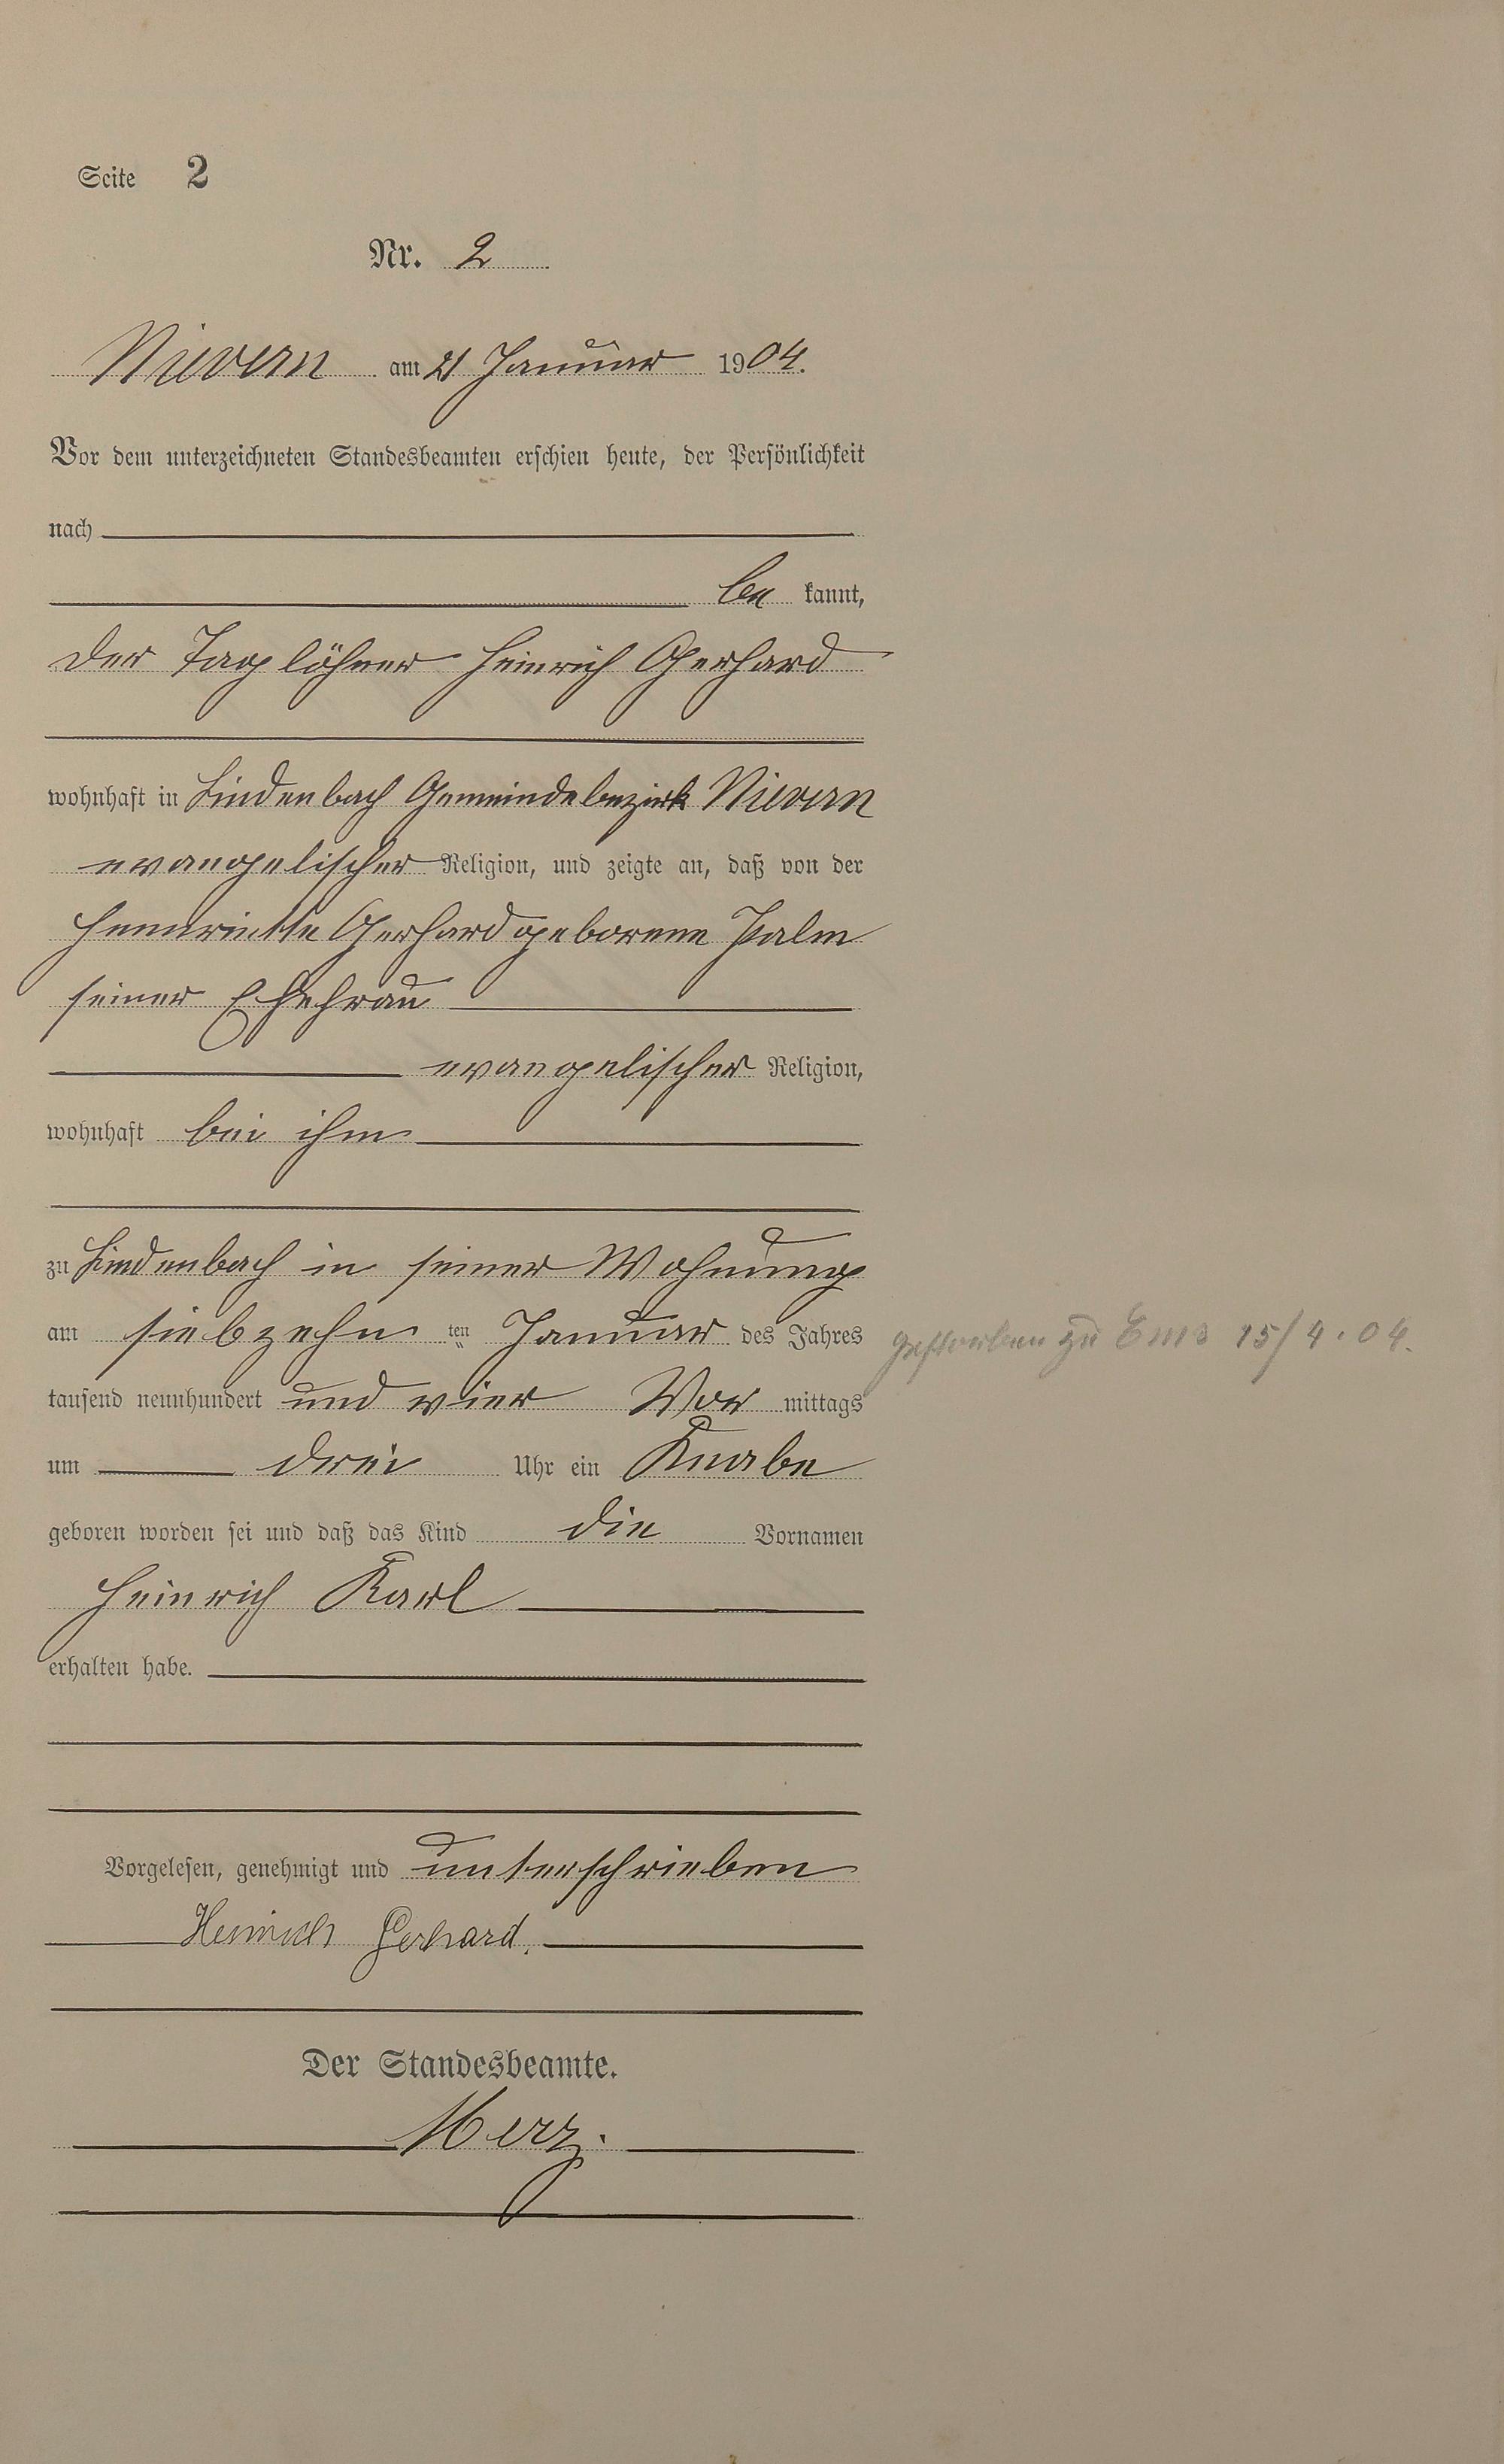 Seite 2
Nr. 2
Nievern am 21 Januar 1904.
Vor dem unterzeichneten Standesbeamten erschien heute, der Persönlichkeit
nach
be kannt,
der Taglöhner Heinrich Gerhard
wohnhaft in Lindenbach Gemeindebezirk Nievern
evangelischer Religion, und zeigte an, daß von der
Henriette Gerhard geborene Palm
seiner Ehefrau
evangelischer Religion,
wohnhaft bei ihm
zu Lindenbach in seiner Wohnung
am siebzehn ten Januar des Jahres
gestorben zu Ems 15/4.04.
tausend neunhundert und vier Vor mittags
um drei Uhr ein Knabe
geboren worden sei und daß das Kind die Vornamen
Heinrich Karl
erhalten habe.
Vorgelesen, genehmigt und unterschrieben
Heinrich Gerhard.
Der Standesbeamte.
Merz.